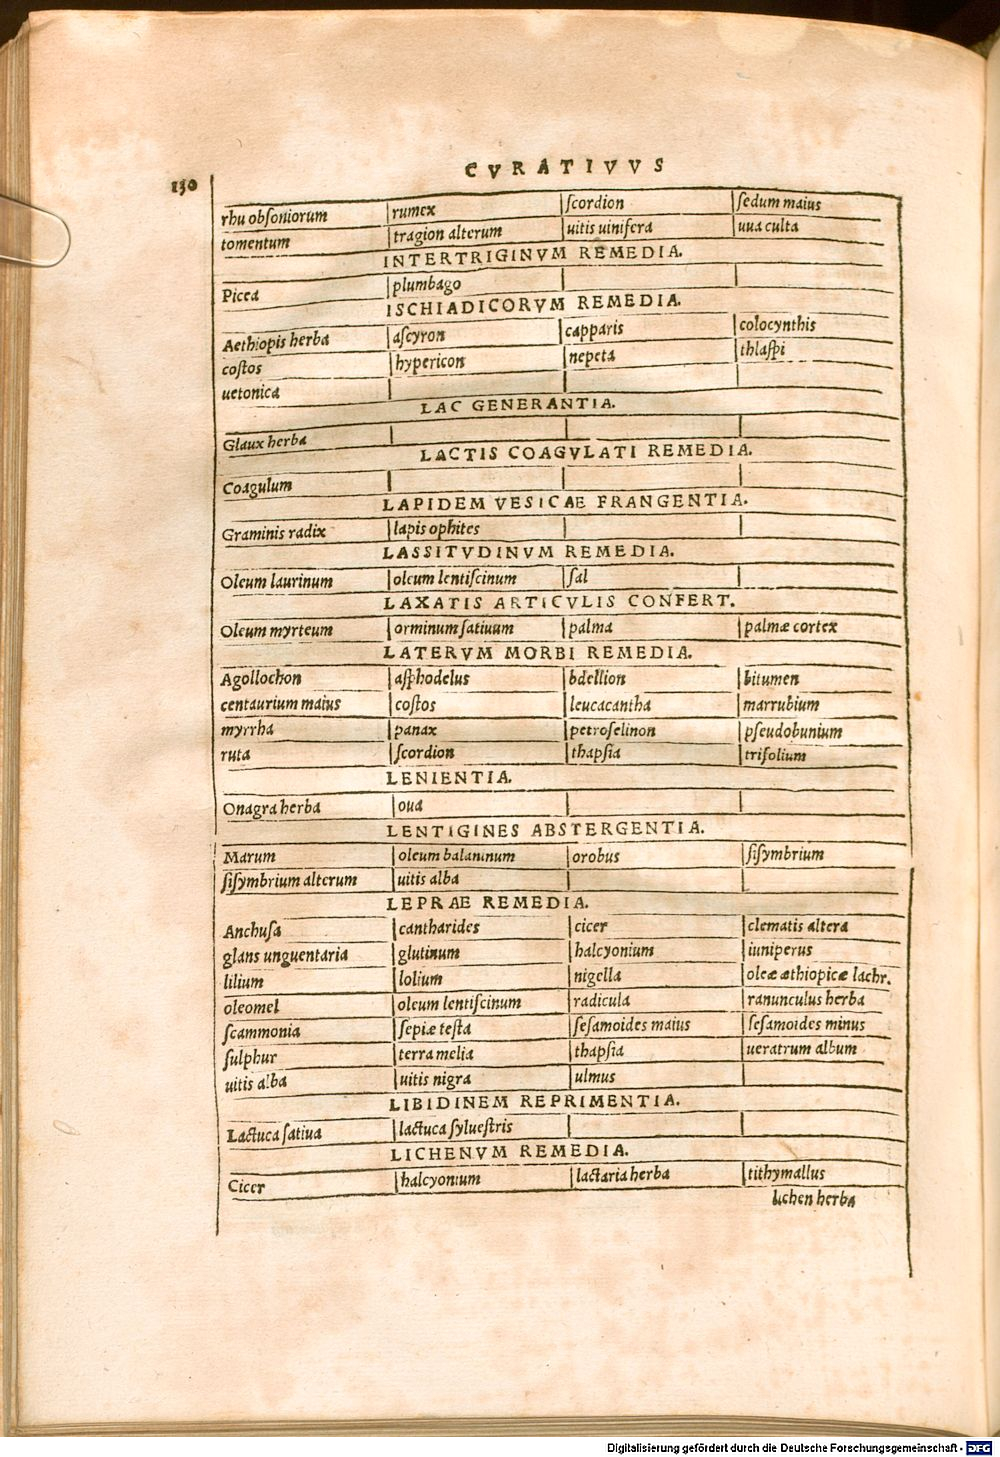 CVRATIVVS
130
rhu obſoniorum | rumex | ſcordion | ſedum maius
tomentum | tragion alterum | uitis uinifera | uua culta
INTERTRIGINVM REMEDIA.
Picea | plumbago
ISCHIADICORVM REMEDIA.
Aethiopis herba | aſcyron | capparis | colocynthis
coſtos | hypericon | nepeta | thlaſpi
uetonica
LAC GENERANTIA.
Glaux herba
LACTIS COAGVLATI REMEDIA.
Coagulum
LAPIDEM VESICAE FRANGENTIA.
Graminis radix | lapis ophites
LASSITVDINVM REMEDIA.
Oleum laurinum | oleum lentiſcinum | ſal
LAXATIS ARTICVLIS CONFERT.
Oleum myrteum | orminum ſatiuum | palma | palmæ cortex
LATERVM MORBI REMEDIA.
Agollochon | aſphodelus | bdellion | bitumen
centaurium maius | coſtos | leucacantha | marrubium
myrrha | panax | petroſelinon | pſeudobunium
ruta | ſcordion | thapſia | trifolium
LENIENTIA.
Onagra herba | oua
LENTIGINES ABSTERGENTIA.
Marum | oleum balaninum | orobus | ſiſymbrium
ſiſymbrium alterum | uitis alba
LEPRAE REMEDIA.
Anchuſa | cantharides | cicer | clematis altera
glans unguentaria | glutinum | halcyonium | iuniperus
lilium | lolium | nigella | oleæ æthiopicæ lachr.
oleomel | oleum lentiſcinum | radicula | ranunculus herba
ſcammonia | ſepiæ teſta | ſeſamoides maius | ſeſamoides minus
ſulphur | terra melia | thapſia | ueratrum album
uitis alba | uitis nigra | ulmus
LIBIDINEM REPRIMENTIA.
Lactuca ſatiua | lactuca ſylueſtris
LICHENVM REMEDIA.
Cicer | halcyonium | lactaria herba | tithymallus
lichen herba
Digitalisierung gefördert durch die Deutsche Forschungsgemeinschaft - DFG